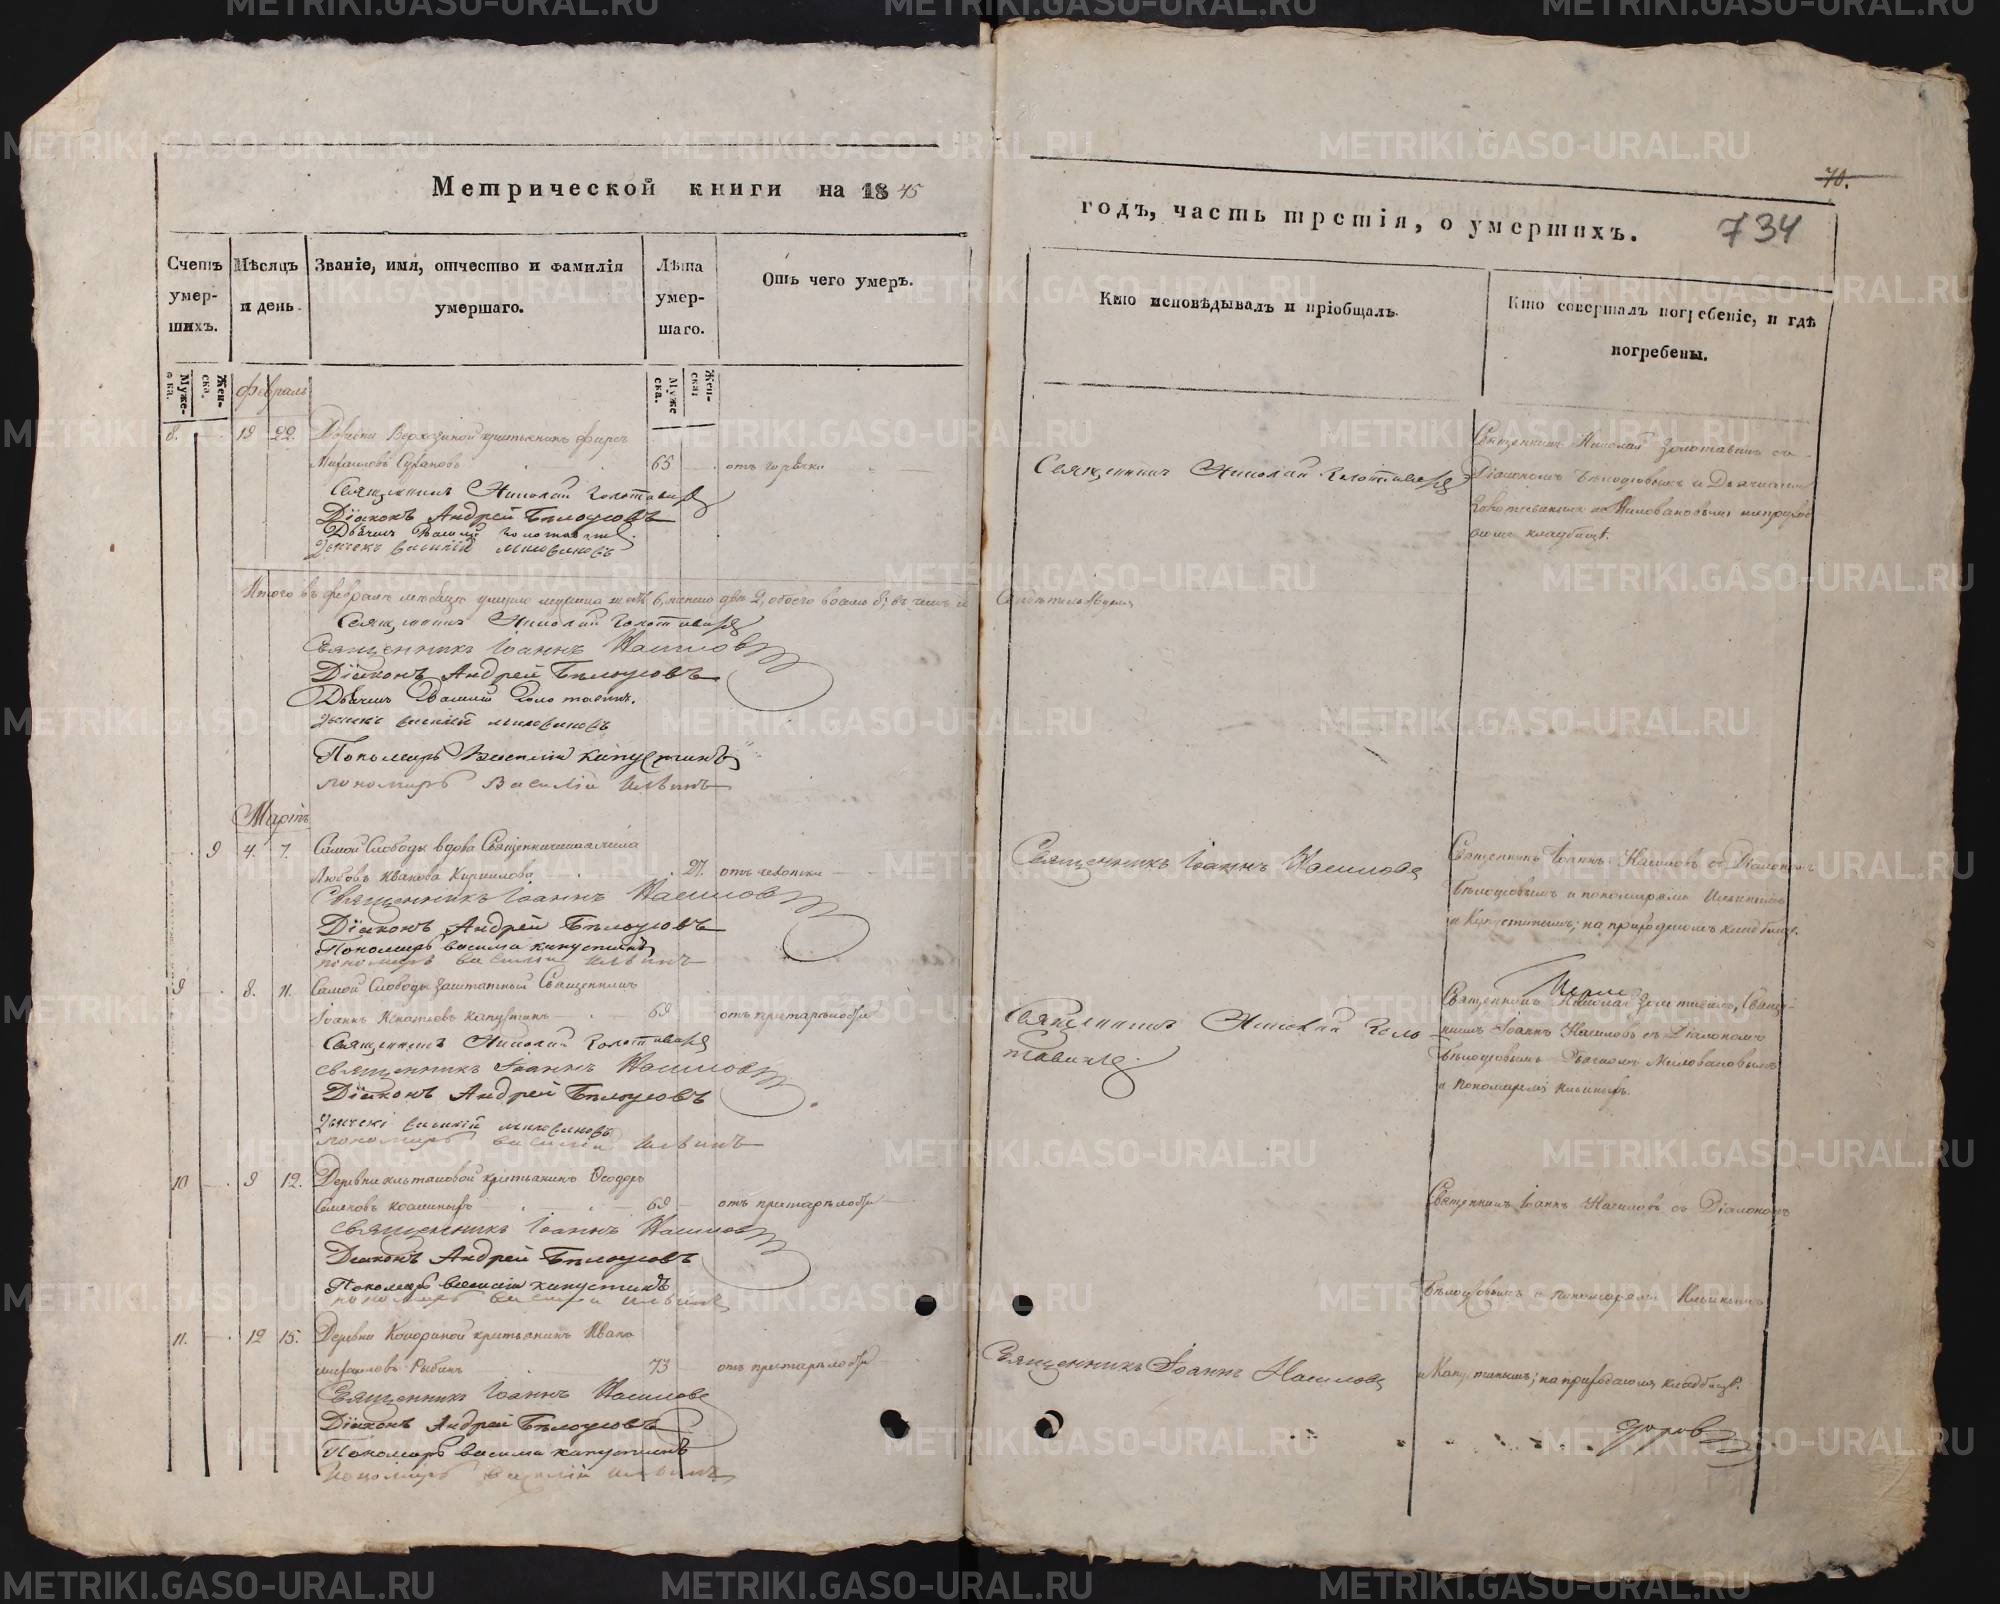 Метрической книги на 1845
годъ, часть третія, о умершихъ.
70.
734
Счетъ умер-шихъ.
Мѣсяцъ и день.
Званіе, имя, отчество и фамилія умершаго.
Лѣта умер-шаго.
Отъ чего умеръ.
Кто исповѣдывалъ и пріобщалъ
Кто совершалъ погребеніе, и гдѣ погребены.
Муже-ска.
Жен-ска.
Муже ска.
Жен-ска.
Февраль
8. 19 22. Деревни крестьянинъ
Михайловъ Сухановъ 65 отъ горячки
Священникъ Николай Золотавинъ
Діаконъ Андрей Бѣлоусовъ
Дьячекъ Василій Золотавинъ
Дьячекъ Василій Миловановъ
Священникъ Николай Золотавинъ
Священникъ Николай Золотавинъ съ
Діакономъ Бѣлоусовымъ и Дьячками
Золотавинымъ и Миловановымъ на приход
скомъ кладбищѣ.
Итого въ февралѣ мѣсяцѣ умерло мужеска шесть 6, женска двѣ 2, обоего восемь 8, въ чемъ и
свидѣтельствуемъ
Священникъ Николай Золотавинъ
Священникъ Іоаннъ Насиловъ
Діаконъ Андрей Бѣлоусовъ
Дьячекъ Василій Золотавинъ.
Дьячекъ Василій Миловановъ
Пономарь Василій Капустинъ
пономарь Василій Ильинъ
Мартъ
9 4. 7. Самой Слободы вдова Священническая жена
Любовь Иванова Кириллова 27. отъ чахотки
Священникъ Іоаннъ Насиловъ
Діаконъ Андрей Бѣлоусовъ
Пономарь Василій Капустинъ
пономарь Василій Ильинъ
Священникъ Іоаннъ Насиловъ
Священникъ Іоаннъ Насиловъ съ Діакономъ
Бѣлоусовымъ и пономарями Ильинымъ
и Капустинымъ; на приходскомъ кладбищѣ.
9 8. 11. Самой Слободы заштатный Священникъ
Іоаннъ Игнатьевъ Капустинъ 69 отъ престарѣлости
Священникъ Николай Золотавинъ
Священникъ Іоаннъ Насиловъ
Діаконъ Андрей Бѣлоусовъ
Дьячекъ Василій Миловановъ
пономарь Василій Ильинъ
Священникъ Николай Золо
тавинъ.
Священникъ Николай Золотавинъ, Священ-
никъ Іоаннъ Насиловъ съ Діакономъ
Бѣлоусовымъ Дьячкомъ Миловановымъ
и пономаремъ Ильинымъ.
10 9 12. Деревни крестьянинъ Ѳеодоръ
69 отъ престарѣлости
Священникъ Іоаннъ Насиловъ
Діаконъ Андрей Бѣлоусовъ
Пономарь Василій Капустинъ
пономарь Василій Ильинъ
Священникъ Іоаннъ Насиловъ съ Діакономъ
Бѣлоусовымъ и пономарями Ильинымъ
11. 12 15. Деревни крестьянинъ Иванъ
Рыбинъ 73 отъ престарѣлости
Священникъ Іоаннъ Насиловъ
Діаконъ Андрей Бѣлоусовъ
Пономарь Василій Капустинъ
Пономарь Василій Ильинъ
Священникъ Іоаннъ Насиловъ
и Капустинымъ; на приходскомъ кладбищѣ.
METRIKI.GASO-URAL.RU